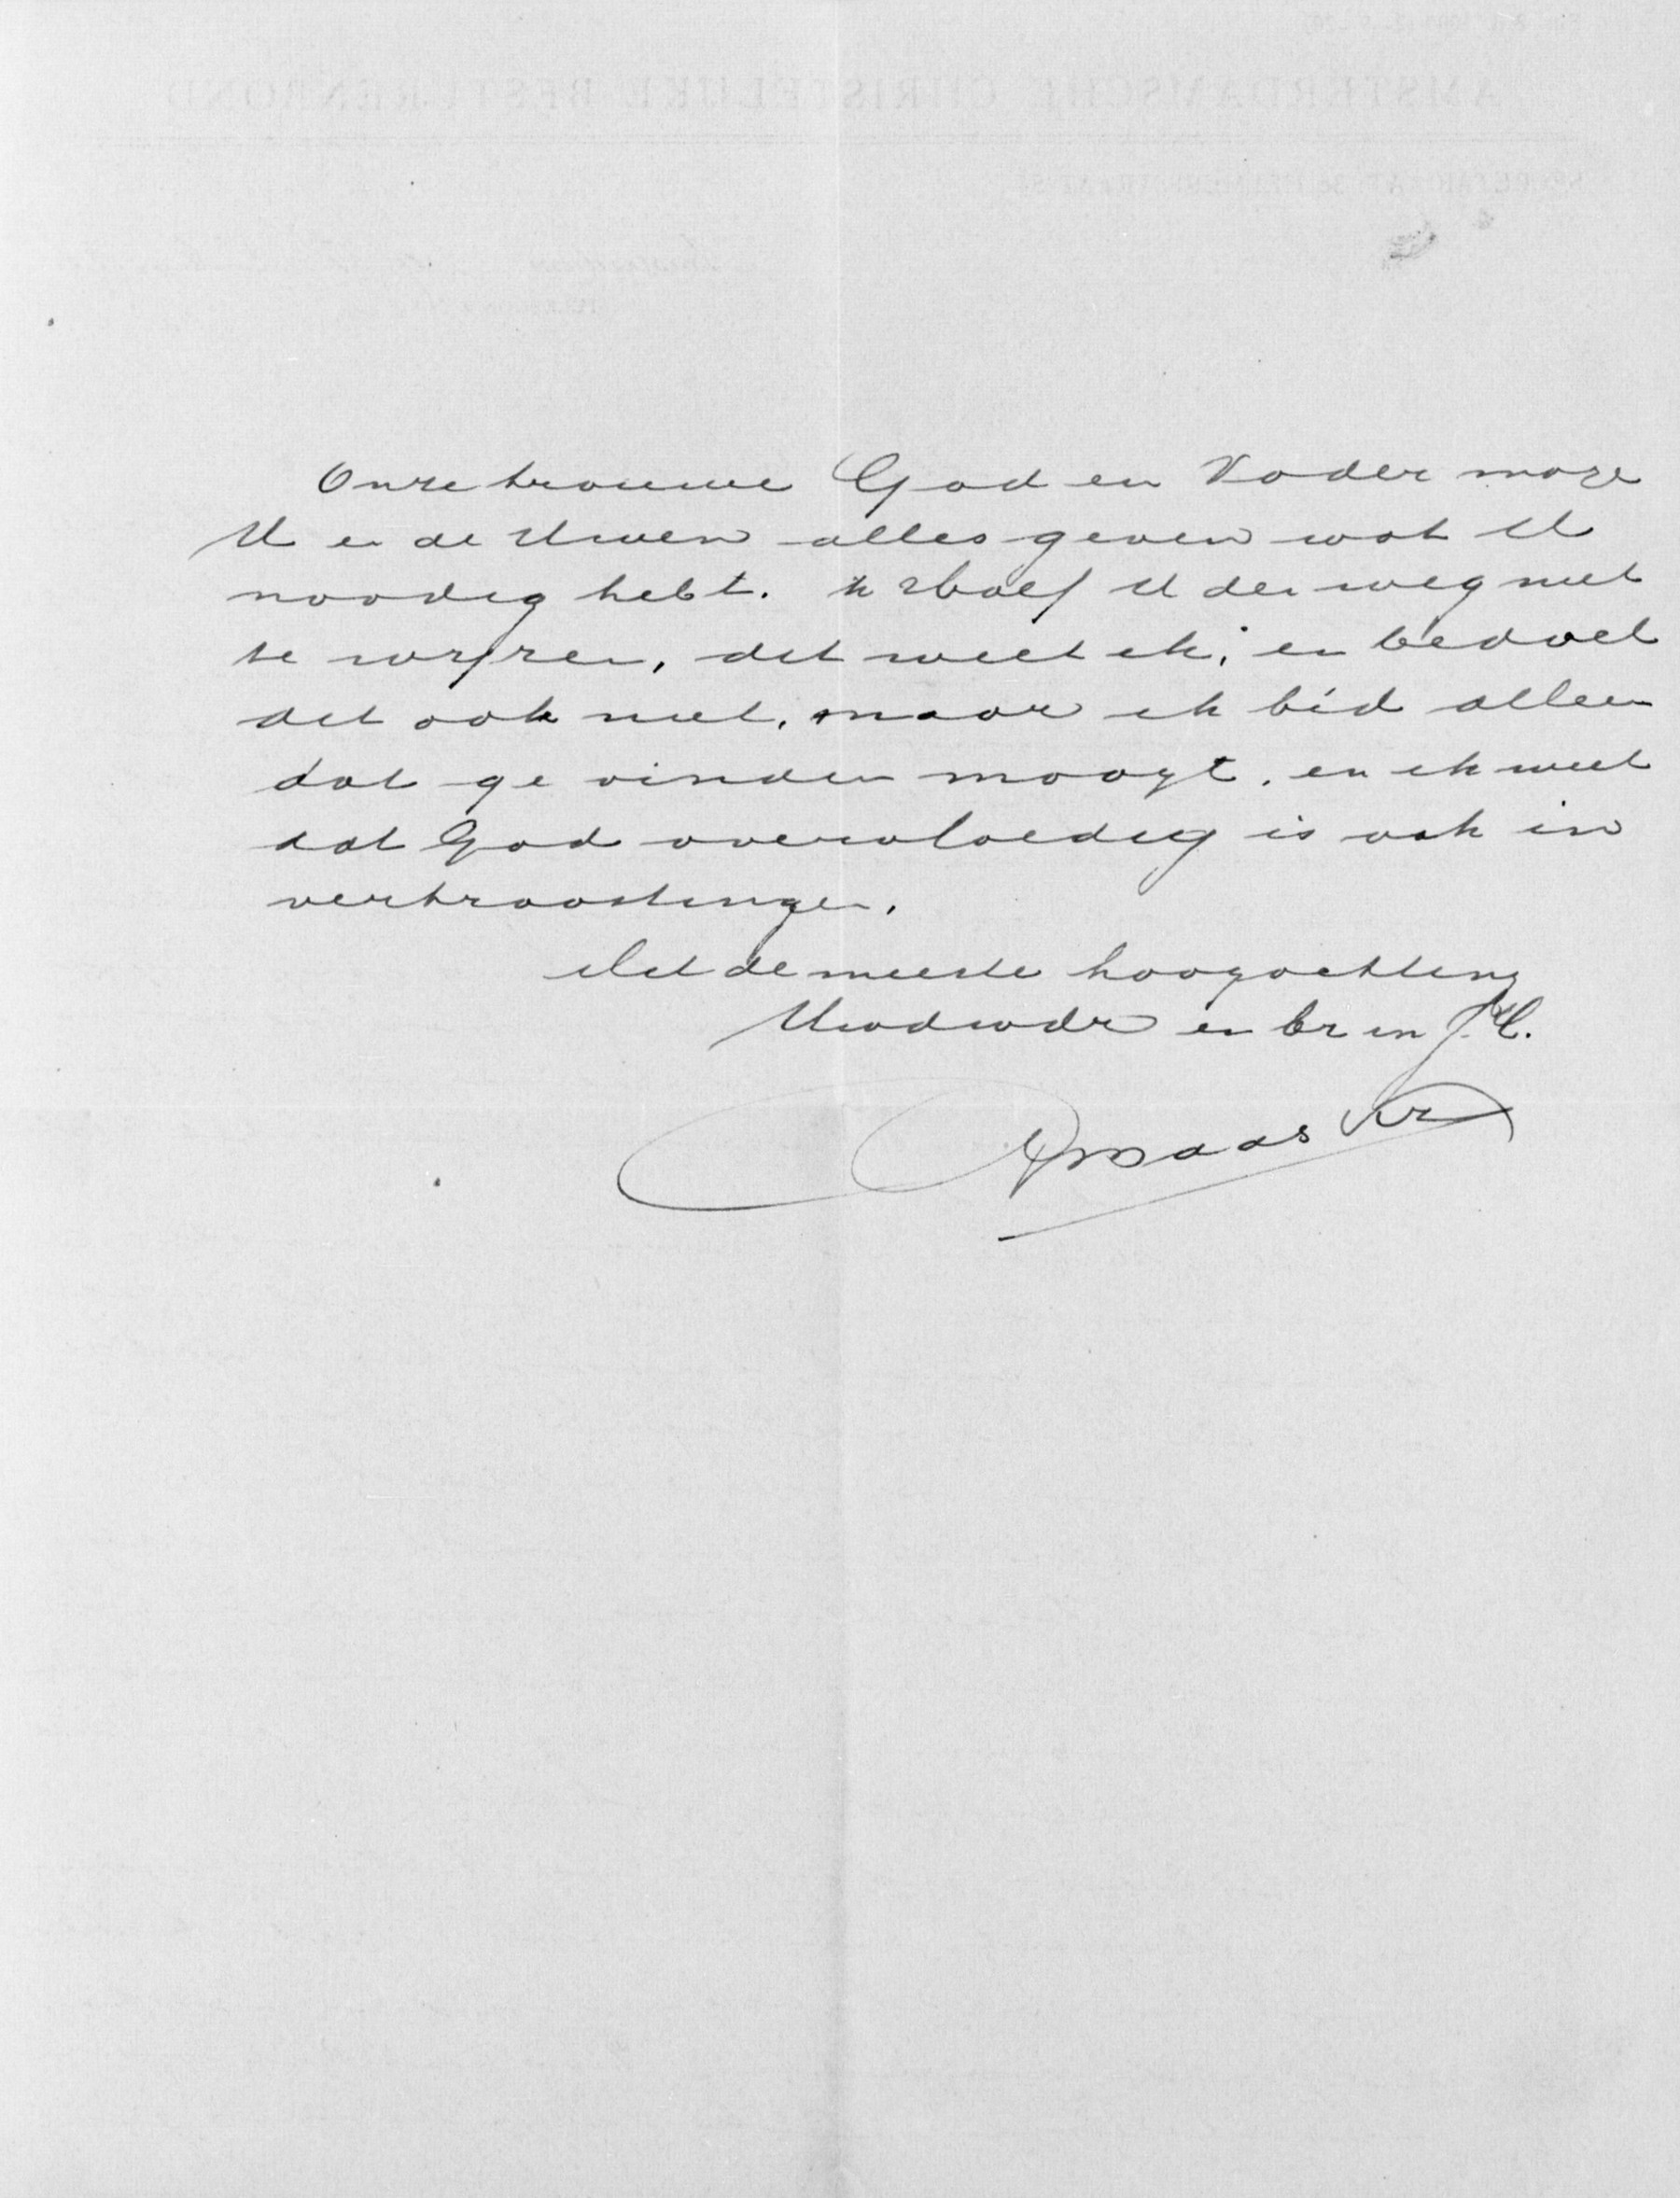 Onze trouwe God en Vader moge
U en de Uwen alles geven wat U
noodig hebt. Ik behoef U den weg niet
te wijzen, dit weet ik, en bedoel
dit ook niet, maar ik bid alleen
dat ge vinden moogt. en ik weet
dat God overvloedig is ook in
vertroostingen.
Met de meeste hoogachting
Uwdwdr en br in J.C.